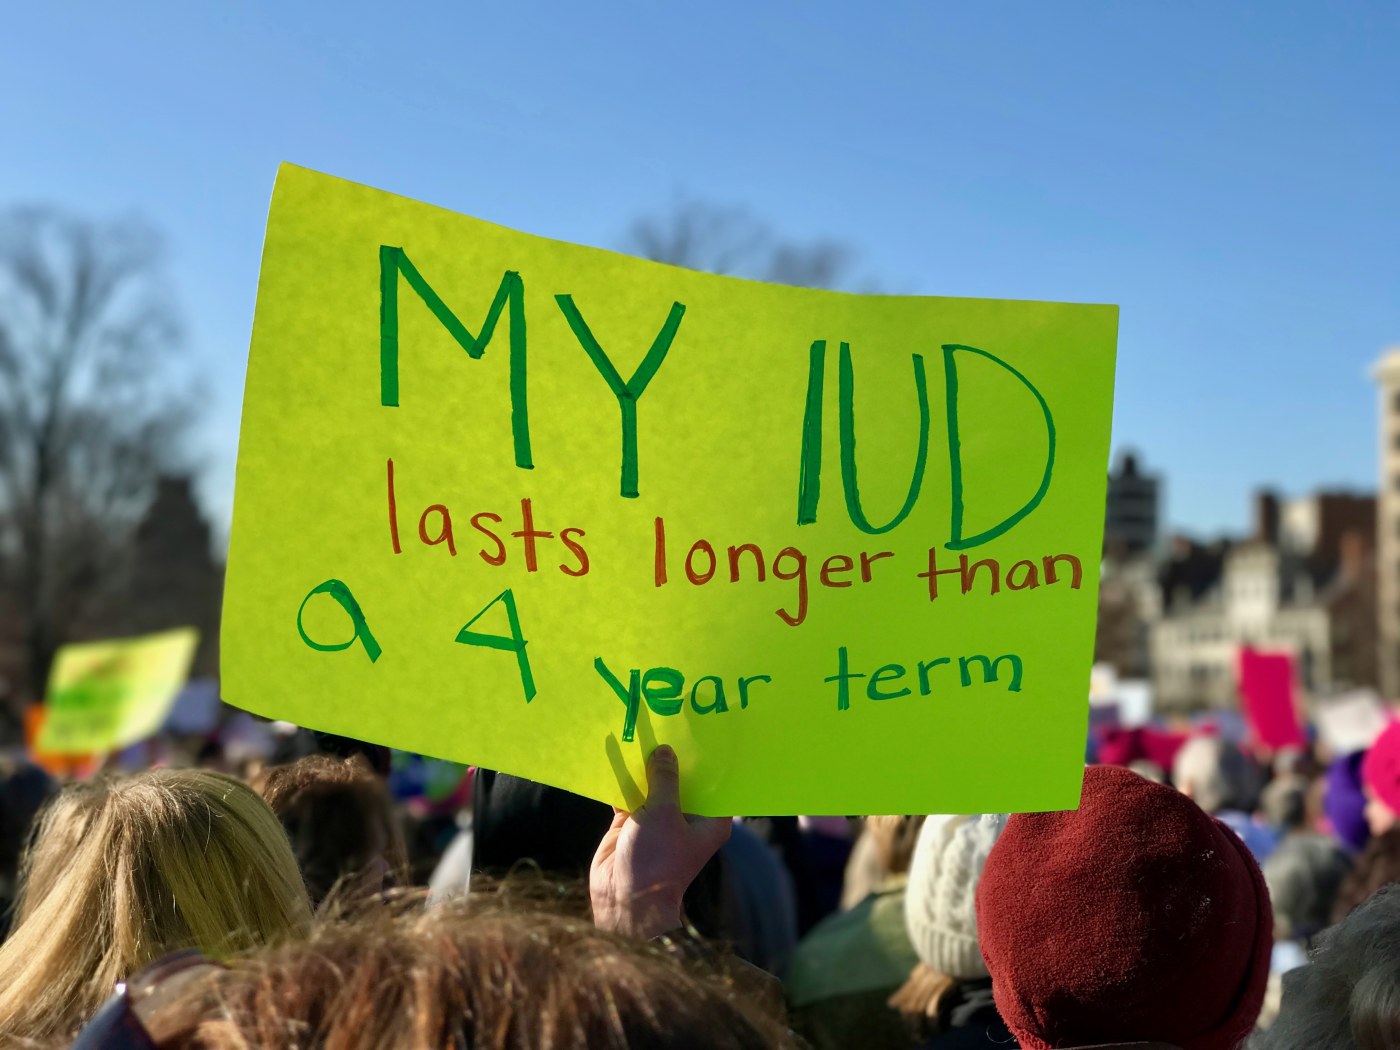 MY IUD
lasts longer than
a 4 year term